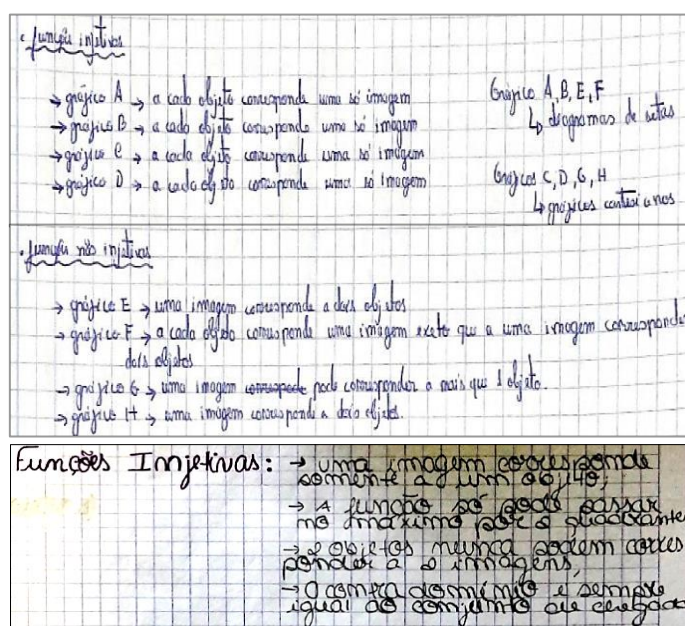 • função injetivas
→ gráfico A → a cada objeto corresponde uma só imagem
→ gráfico B → a cada objeto corresponde uma só imagem
→ gráfico C → a cada objeto corresponde uma só imagem
→ gráfico D → a cada objeto corresponde uma só imagem
Gráfico A, B, E, F
↳ diagramas de setas
Gráficos C, D, G, H
↳ gráficos cartesianos
• função não injetivas
→ gráfico E → uma imagem corresponde a dois objetos
→ gráfico F → a cada objeto corresponde uma imagem exeto que a uma imagem corresponde
dois objetos
→ gráfico G → uma imagem corresponde pode corresponder a mais que 1 objeto.
→ gráfico H → uma imagem corresponde a dois objetos.
Funções Injetivas: → uma imagem corresponde
somente a um objeto;
→ A função só pode passar
no máximo por 2 quadrantes
→ 2 objetos nunca podem corres
ponder a 2 imagens;
→ O contra domínio é sempre
igual ao conjunto de chegada